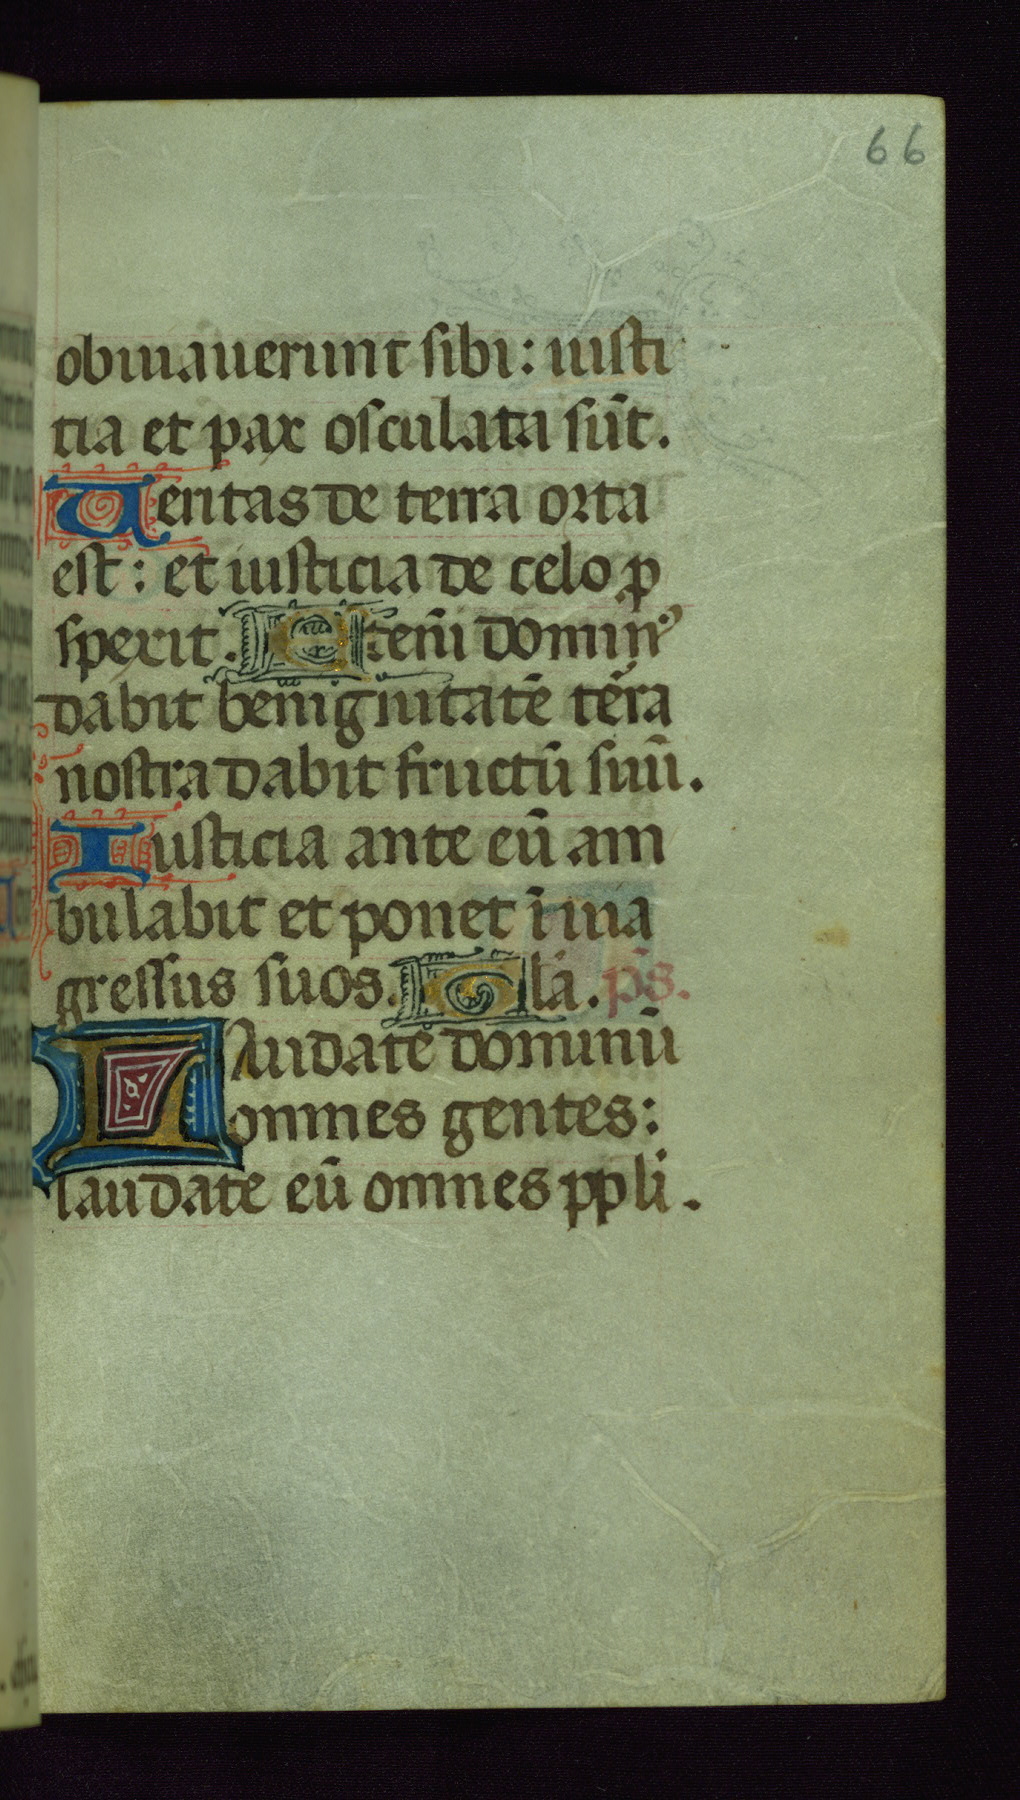 66
obuiauerunt sibi: iusti
tia et pax osculata sūt.
Ueritas de terra orta
est: et iusticia de celo ꝓ
spexit. Eteni̅ domin⁹
dabit benignitatē tērra
nostra dabit fructū suū.
Iusticia ante eū am
bulabit et ponet ī uia
gressus suos. Gl̄a. p̄s.
LAudate dominū
omnes gentes:
laudate eū omnes ppl̄i.